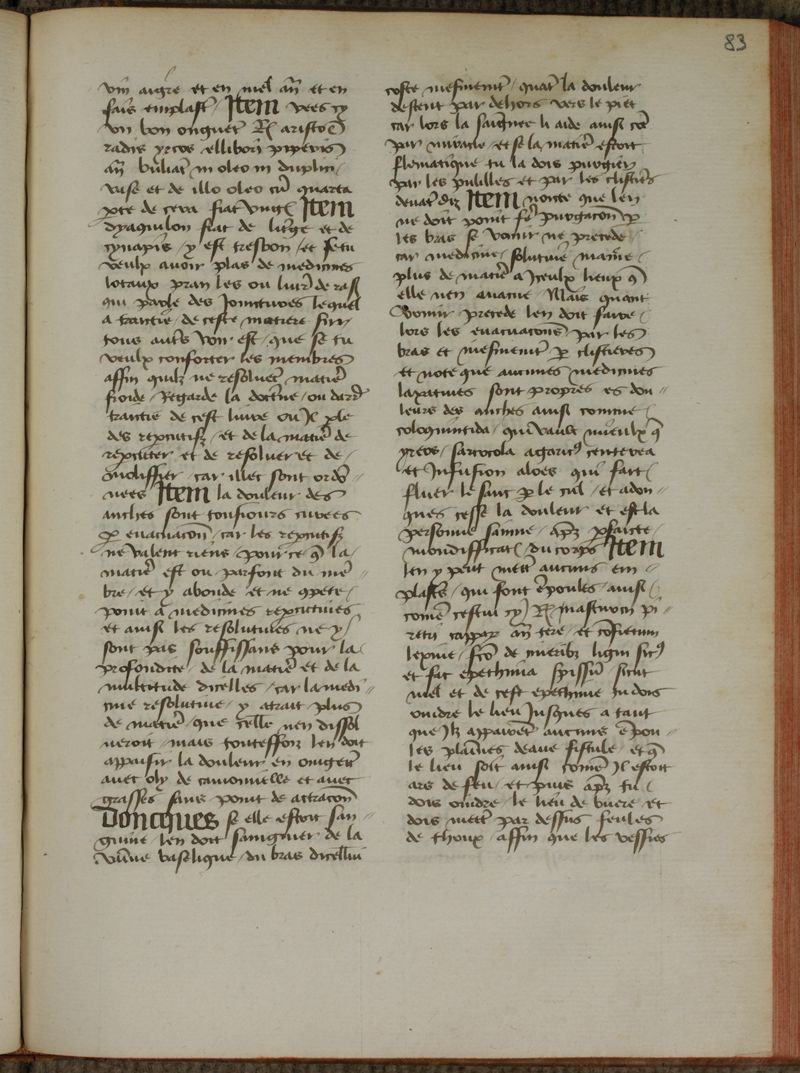 83
vin aigre et en miel añ et en
fais emplast̃ / Item vees cy
Un bon onguet̃ R̃ aristol̃
radis yreos ellibori piperis
añ buliat̃ in oleo in duplici /
vase et de illo oleo cũ quarta
pte de cera fiat ung̃ Item
dyaquilon fiat de litge et de
synapis / y est tresbon / et se tu
veulx avoir plus de medicines
locaux pran les ou livr̃ de rasi
qui parle des Joinctures lequel
a traictie / de ceste matiere sur
tous autr̃s Voir est / que se tu
veulx conforter les membres
affin quilz ne resolvet̃ matier̃
froide / Regarde la doct̃ne / ou darr̃
traictie de cest livre ou Il ple
des repcutifz / et de la matier̃ de
repcuter et de resolver et de /
mollissier / car illec sont ordõ //
nees Item la douleur des
anches sont tousiours curees
p̃ evacuacon̄ / car les repcutifz
ne valent riens / pour ce q̃ la /
matier̃ est ou parfont du mẽ //
bre / et y abonde et ne opete /
point a medicines repcutives
et aussi les resolutives ne y /
sont pas souffissans pour la
profondite / de la matier̃ et de la
multitude dicelles / car la medi //
cine resolutive / y atrait plus
de matier̃ / que celle nen dissol
veroit / mais touteffoiz len doit
appaisir la douleur en oinget̃
avec oly de camomielle et avec
gresses sans point de attraccon̄
Doncques se elle estoit san //
guine len doit saingnier de la
vaine basilique / du bras dicelluj
coste mesmemt̃ / quãt la douleur
descent par dehors vers le piet
car lors la saignee li aide aussi cõe
par miracle / et se la matier̃ estoit
flematique tu la dois purgier
par les pillules et par les clistier̃s
devãt diz Item note que len
ne doit point fẽ purgacon̄ p̃
les bras se vomir ne precede /
car medicine / solutive / maine /
plus de matier̃ a Iceulx lieux q̃
elle nen avacue / Mais quant
Vomir precede len doit faire /
lors les evacuacons̄ par les
bras et mesmemt̃ p̃ clisteres
et note que aucunes medicines
laxatives sont propres es dou //
leurs des anches aussi comme /
coloquintida / qui vault mieulx q̃
yreos / sarcocola agaric9 centerea
et Infusion aloes qui fait /
fluer le sanc p̃ le cul / et adon //
ques cesse la douleur et est la
personne sainne / ap̃z pfaicte /
mondifficat̃ / du corps Item
len y peut mett̃ aucuns em //
plastr̃s / qui font ẽpoules / aussi /
comẽ cestui cy / R̃ masticon pi //
retri cappar̃ añ tere / et cõfectum
lepinie / fcõ de cineribz ligni fic9
et fac epethima spissũ sicut
miel et de cest epethime tu dois
oindre le lieu Jusques a tant
que Ilz apparoet̃ aucunes ẽpou //
les plaines deaue fistule / et q̃
le lieu soit aussi comẽ Il estoit
ars de feu / et puis ap̃z tu /
dois oindre / le lieu de buere et
dois mett̃ par dessus feules
de choux / affin que les vessies